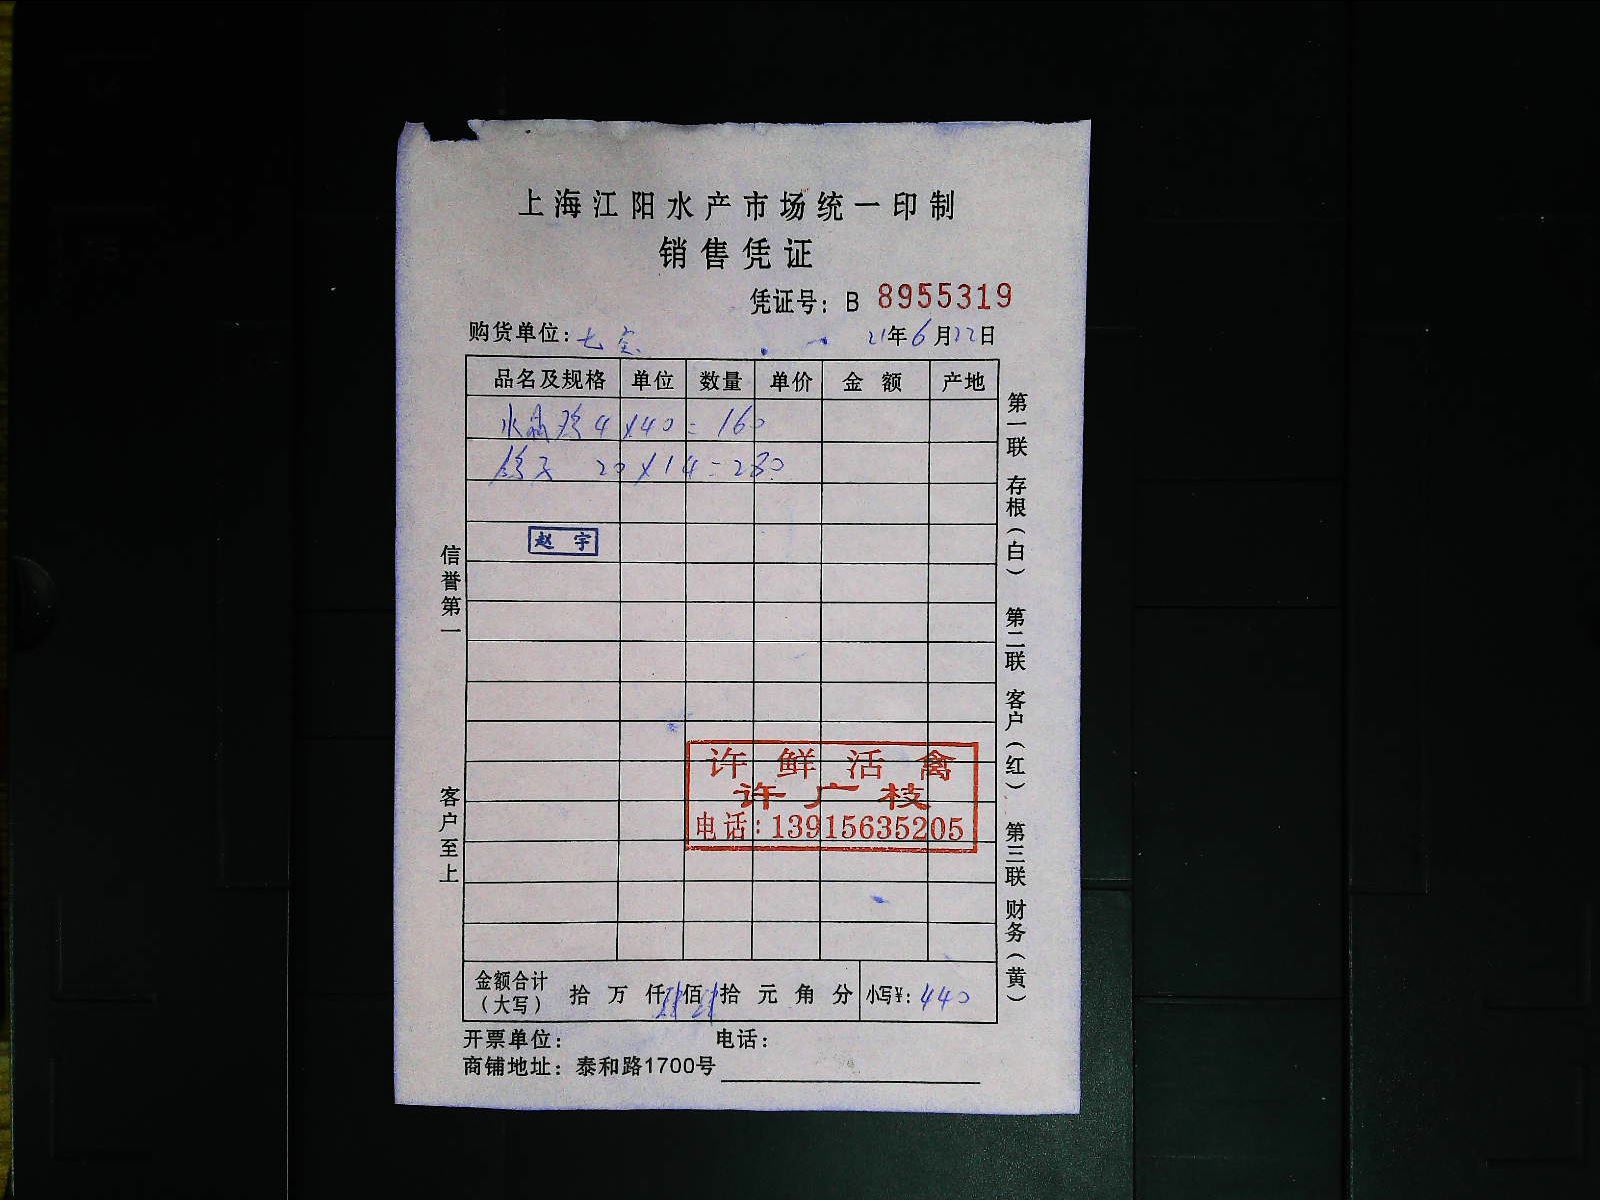 上海江阳水产市场统一印制
销售凭证
凭证号：B 8955319
购货单位：七宝 21年6月22日
品名及规格 单位 数量 单价 金额 产地
水晶鸡 4×40=160
鸽子 20×14=280
赵宇
信誉第一
客户至上
许鲜活禽
许广枝
电话：13915635205
第一联 存根（白） 第二联 客户（红） 第三联 财务（黄）
金额合计（大写） 拾 万 仟 肆 佰 肆 拾 元 角 分 小写￥：440
开票单位： 电话：
商铺地址：泰和路1700号